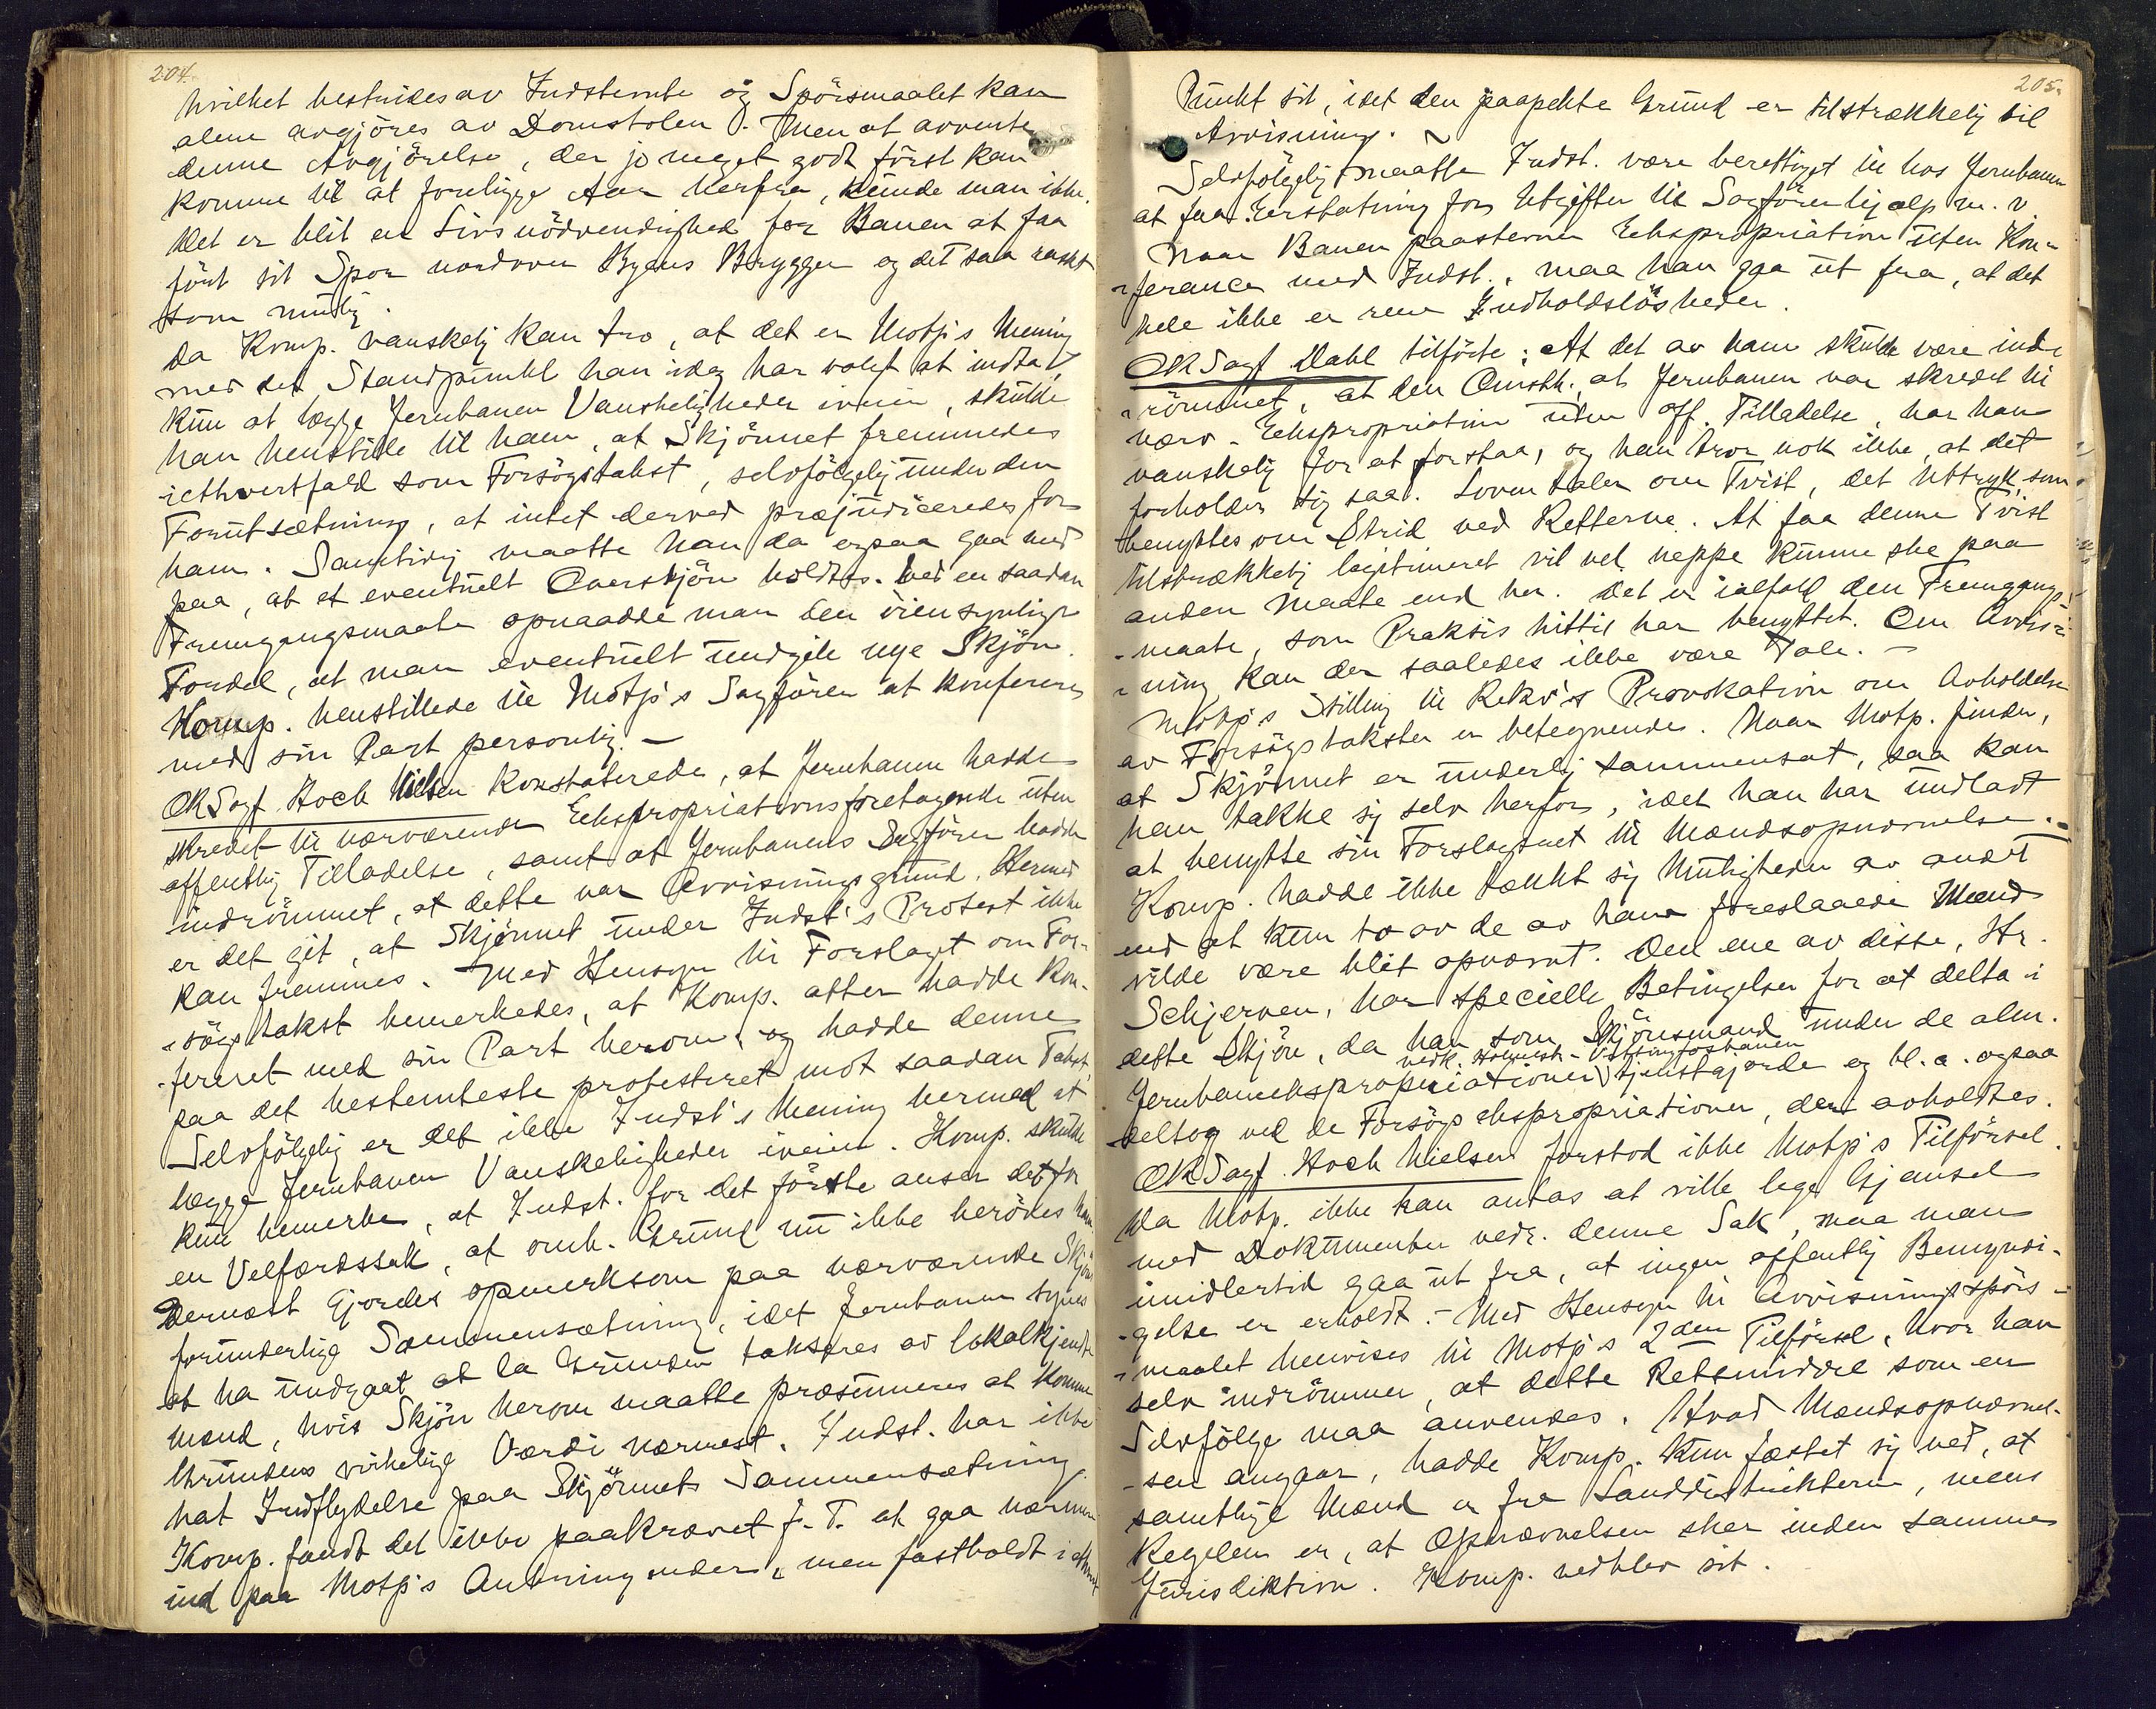 204.
hvilket bestrides av Indstevnte og Spörsmaalet kan
alene avgjöres av Domstolen. Men at avvente
denne Avgjörelse, der jo meget godt först kan
komme til at foreligge Aar herfra, kunde man ikke.
Det er blit en Livsnödvendighed for Banen at faa
fört sit Spor nordover Byens Brygger og det saa raskt
som mulig.
Da Komp. vanskelig kan tro, at det er Motp's Mening
med det Standpunkt han idag har valgt at indta,
kun at lægge Jernbanen Vanskeligheder iveien, skulde
han henstille til ham, at Skjönnet fremmedes
iethvertfald som Forsögstakst, selvfölgelig under den
Forutsætning, at intet derved præjudiceredes for
ham. Samtidig maatte han da ogsaa gaa med
paa, at et eventuelt Overskjön holdtes. Ved en saadan
Fremgangsmaate opnaadde man den öiensynlige
Fordel, at man eventuelt undgik nye Skjön.
Komp. henstillede til Motp's Sagförer at konferere
med sin Part personlig. —
OR Sagf. Hoch Nielsen konstaterede, at Jernbanen hadde
skredet til nærværende Ekspropriationsforetagende uten
offentlig Tilladelse, samt at Jernbanens Sagförer hadde
indrömmet, at dette var Avvisningsgrund. Hermed
er det git, at Skjönnet under Indst's Protest ikke
kan fremmes. Med Hensyn til Forslaget om For-
sögstakst bemerkedes, at Komp. atter hadde kon-
-fereret med sin Part herom, og hadde denne
paa det bestemteste protesteret mot saadan Takst.
Selvfölgelig er det ikke Indst's Mening hermed at
lægge Jernbanen Vanskeligheder iveien. Komp. skulde
kun bemerke, at Indst. for det förste anser det for
en Velfærdssak, at omh. Grund nu ikke beröves ham.
Dernæst gjordes opmerksom paa nærværende Skjöns
forunderlige Sammensætning, idet Jernbanen synes
at ha undgaat at la Grunden taksères av lokalkjendte
Mænd, hvis Skjön herom maatte præsumeres at komme
Grundens virkelige Værdi nærmest. Indst. har ikke
hat Indflydelse paa Skjönnets Sammensætning.
Komp. fandt det ikke paakrævet f. T. at gaa nærmere
ind paa Motp's Anbringender, men fastholdt i ethvert
205.
Punkt sit, idet den paapekte Grund er tilstrækkelig til
Avvisning.
Selvfölgelig maatte Indst. være berettiget til hos Jernbanen
at faa Erstatning for Utgifter til Sagförerhjælp m. v
Naar Banen paastevner Ekspropriation uten Kon-
-ference med Indst., maa han gaa ut fra, at det
hele ikke er rene Indholdslösheder.
OR Sagf. Dahl tilförte: At det av ham skulde være ind-
-römmet, at den Omsth. at Jernbanen var skredet til
nærv. Ekspropriation uten off. Tilladelse, har han
vanskelig for at forstaa, og han tror nok ikke, at det
forholder sig saa. Loven taler om Tvist, det Uttryk, som
benyttes om Strid ved Retterne. At faa denne Tvist
tilstrækkelig legitimeret vil vel neppe kunne ske paa
anden Maate end her. Det er ialfald den Fremgangs-
-maate, som Praksis hittil har benyttet. Om Avvis-
-ning kan der saaledes ikke være Tale. —
Motp's Stilling til Rekv's Provokation om Avholdelse
av Forsögstakster er betegnende. Naar Motp. finder,
at Skjönnet er underlig sammensat, saa kan
han takke sig selv herfor, idet han har undladt
at benytte sin Forslagsret til Mændsopnævnelse. —
Komp. hadde ikke tænkt sig Muligheden av andet
end at kun to av de av ham foreslaaede Mænd
vilde være blit opnævnt. Den ene av disse, Hr.
Schjerven, har specielle Betingelser for at delta i
dette Skjön, da han som Skjönsmand under de alm.
vedk. Holmestr.-Vittingfosbanen
Jernbaneekspropriationer tjenstgjorde og bl. a. ogsaa
deltog ved de Forsögsekspropriationer, der avholdtes.
OR Sagf. Hoch Nielsen forstod ikke Motp's Tilförsel.
Da Motp. ikke kan antas at ville lege Gjemsel
med Dokumenter vedr. denne Sak, maa man
imidlertid gaa ut fra, at ingen offentlig Bemyndi-
-gelse er erholdt. — Med Hensyn til Avvisningsspörs-
-maalet henvises til Motp's 2den Tilförsel, hvor han
selv indrömmer, at dette Retsmiddel som en
Selvfölge maa anvendes. Hvad Mændsopnævnel-
-sen angaar, hadde Komp. kun fæstet sig ved, at
samtlige Mænd er fra Landdistrikterne, mens
Regelen er, at Opnævnelsen sker inden samme
Jurisdiktion. Komp. vedblev sit.